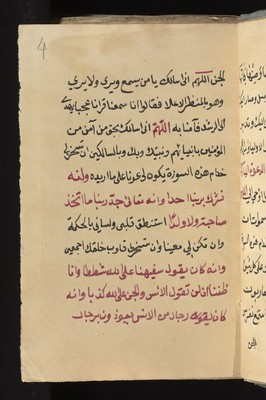 4
لجن اللهم انى اسالك يا من يسمع ويرى ولا يرى
وهو بالمنظر الاعلا فقالوا انا سمعنا قرانا عجبا يهدى
الى الرشد فآمنا به اللهم انى اسالك بحق من آمن من
المؤمنين بانبيائهم ونبيك وبك وبالسالكين ان تسخر لى
خدام هذه السورة يكونو لى عونا على ما اريده ولن
نشرك بربنا احدا وانه تعالى جد ربنا ما اتخذ
صاحبة ولا ولدا استنطق قلبى ولسانى بالحكمة
وان تكن لى معينا وان تسخر لى قلوب خلقك اجمعين
وانه كان يقول سفيهنا على الله شططا وانا
ظننا ان لن تقول الانس والجن على الله كذبا وانه
كان رجال من الانس يعوذون برجال